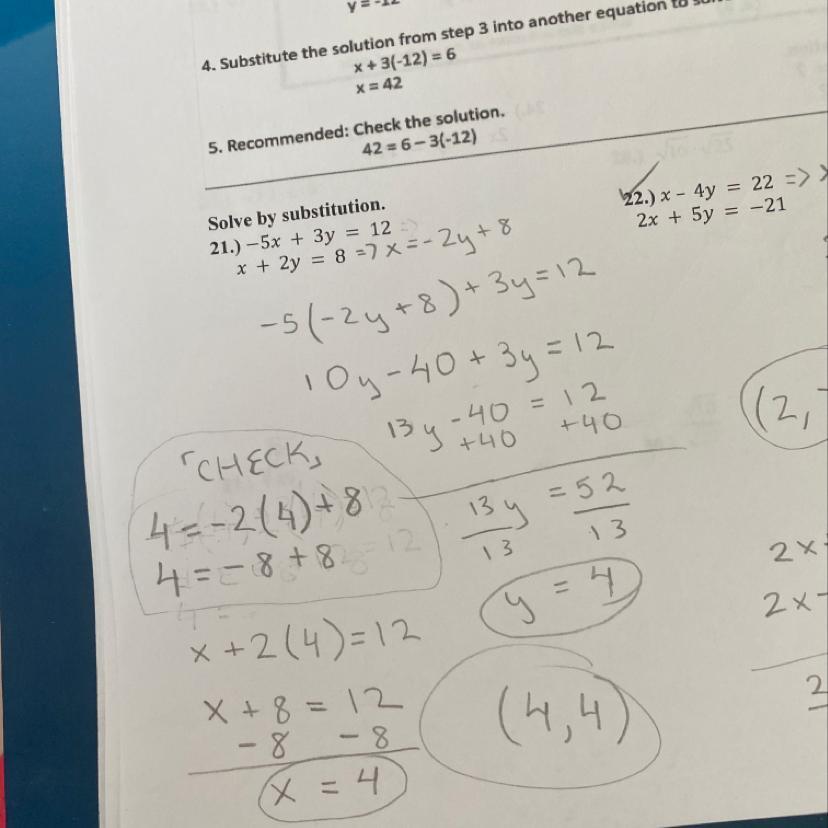 y = -12
4. Substitute the solution from step 3 into another equation to
x + 3(-12) = 6
x = 42
5. Recommended: Check the solution.
42 = 6 – 3(-12)
Solve by substitution.
21.) −5x + 3y = 12
x + 2y = 8 => x = -2y + 8
-5(-2y + 8) + 3y = 12
10y - 40 + 3y = 12
13y - 40 = 12
+40 +40
13y = 52
13 13
y = 4
CHECK
4 = -2(4) + 8
4 = -8 + 8
x + 2(4) = 12
x + 8 = 12
- 8 - 8
x = 4
(4,4)
22.) x − 4y = 22 =>
2x + 5y = −21
(2,
2x
2x
2